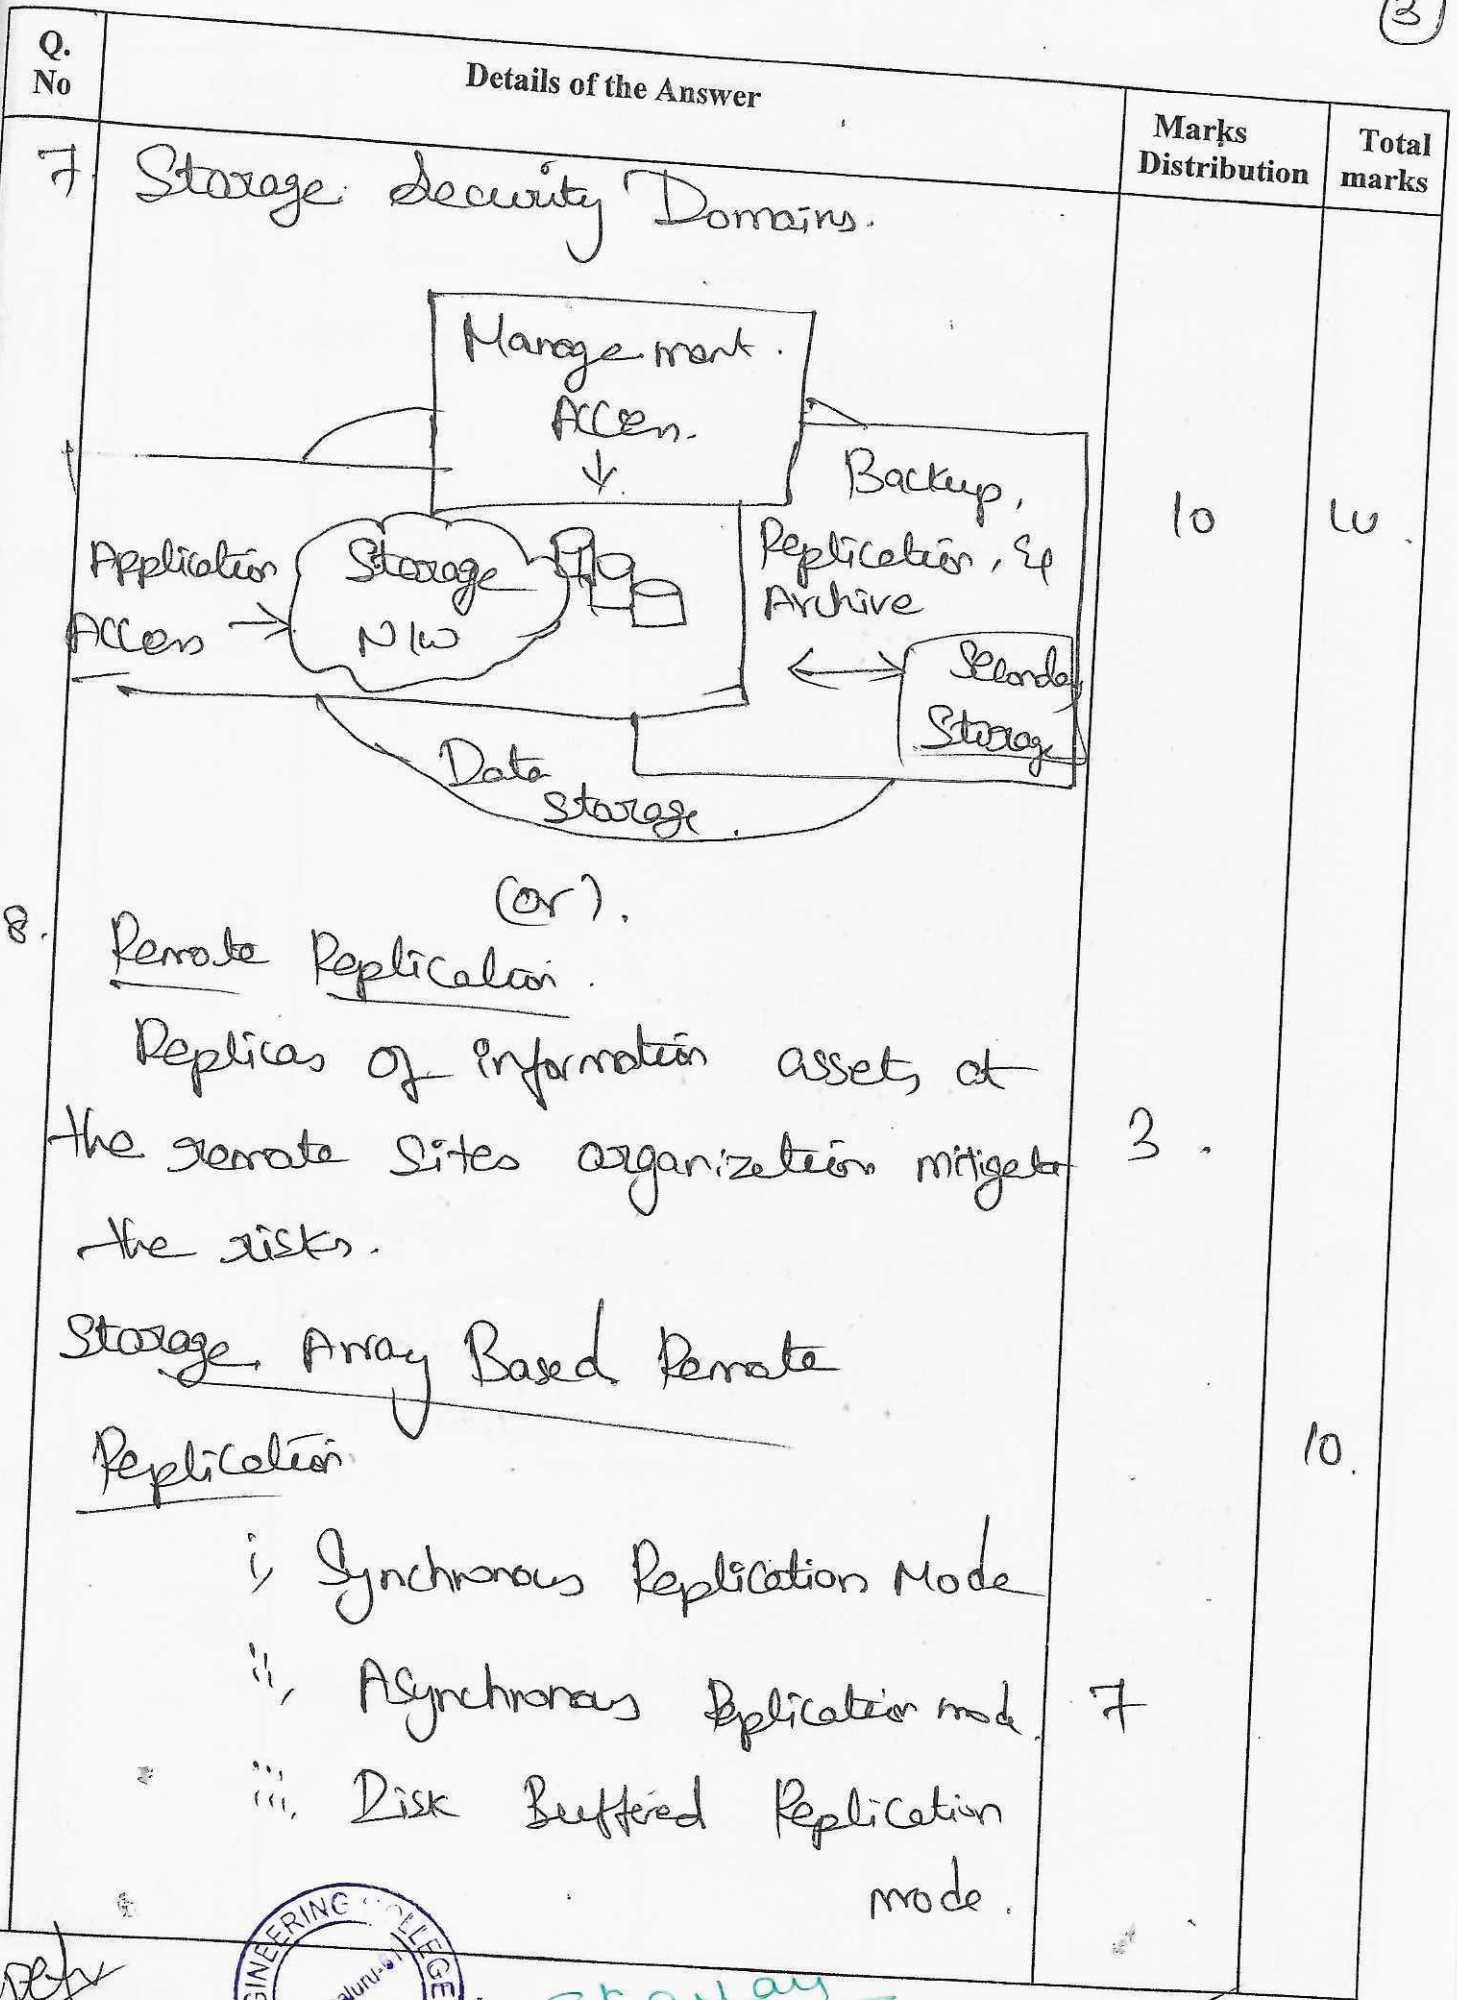 3
Q.
No
Details of the Answer
Marks
Distribution
Total
marks
7. Storage Security Domains.
Management.
Access.
Backup,
Replication, &
Archive
Application
Access
Storage
N/W
Secondary
Storage
Data
Storage.
10
10.
(or).
8.
Remote Replication.
Replicas of information assets at
the remote sites organization mitigate
the risks.
3.
Storage Array Based Remote
Replication
10.
i, Synchronous Replication Mode
ii, Asynchronous Replication mode.
7
iii, Disk Buffered Replication
mode.
GINEERING COLLEGE
aluru-61